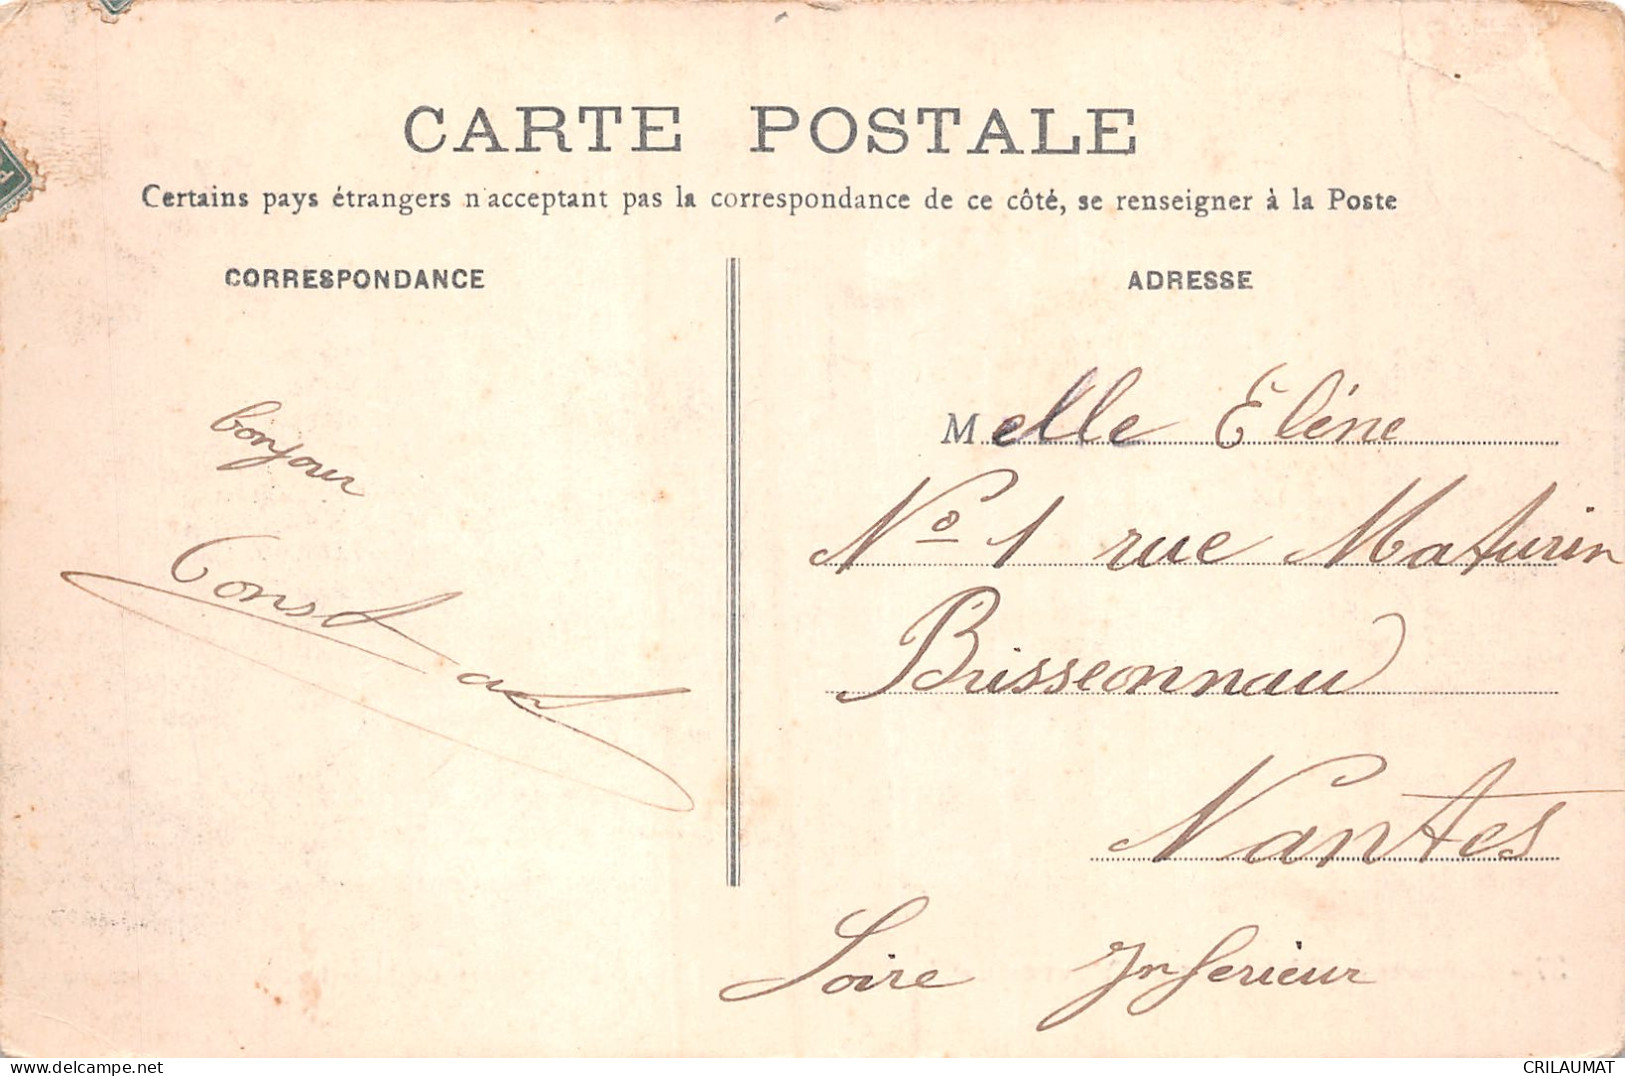 CARTE POSTALE
Certains pays étrangers n'acceptant pas la correspondance de ce côté, se renseigner à la Poste
CORRESPONDANCE
ADRESSE
bonjour
Constant
Melle Eléne
No 1 rue Maturin
Brisseonnau
Nantes
Loire Inferieur
CRILAUMAT